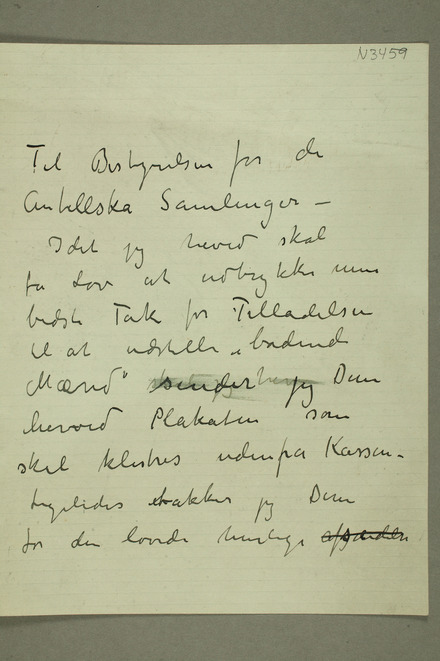 N3459
Til Bestyrelsen for de
Antellska Samlinger –
Idet jeg herved skal
få lov at udtrykke min
bedste Tak for Tilladelsen
til at udstille „badende
Mænd" sender jeg Dem
herved Plakaten som
skal klistres udenpå Kassen –
ligeledes takker jeg Dem
for den lovede hurtige afsenden